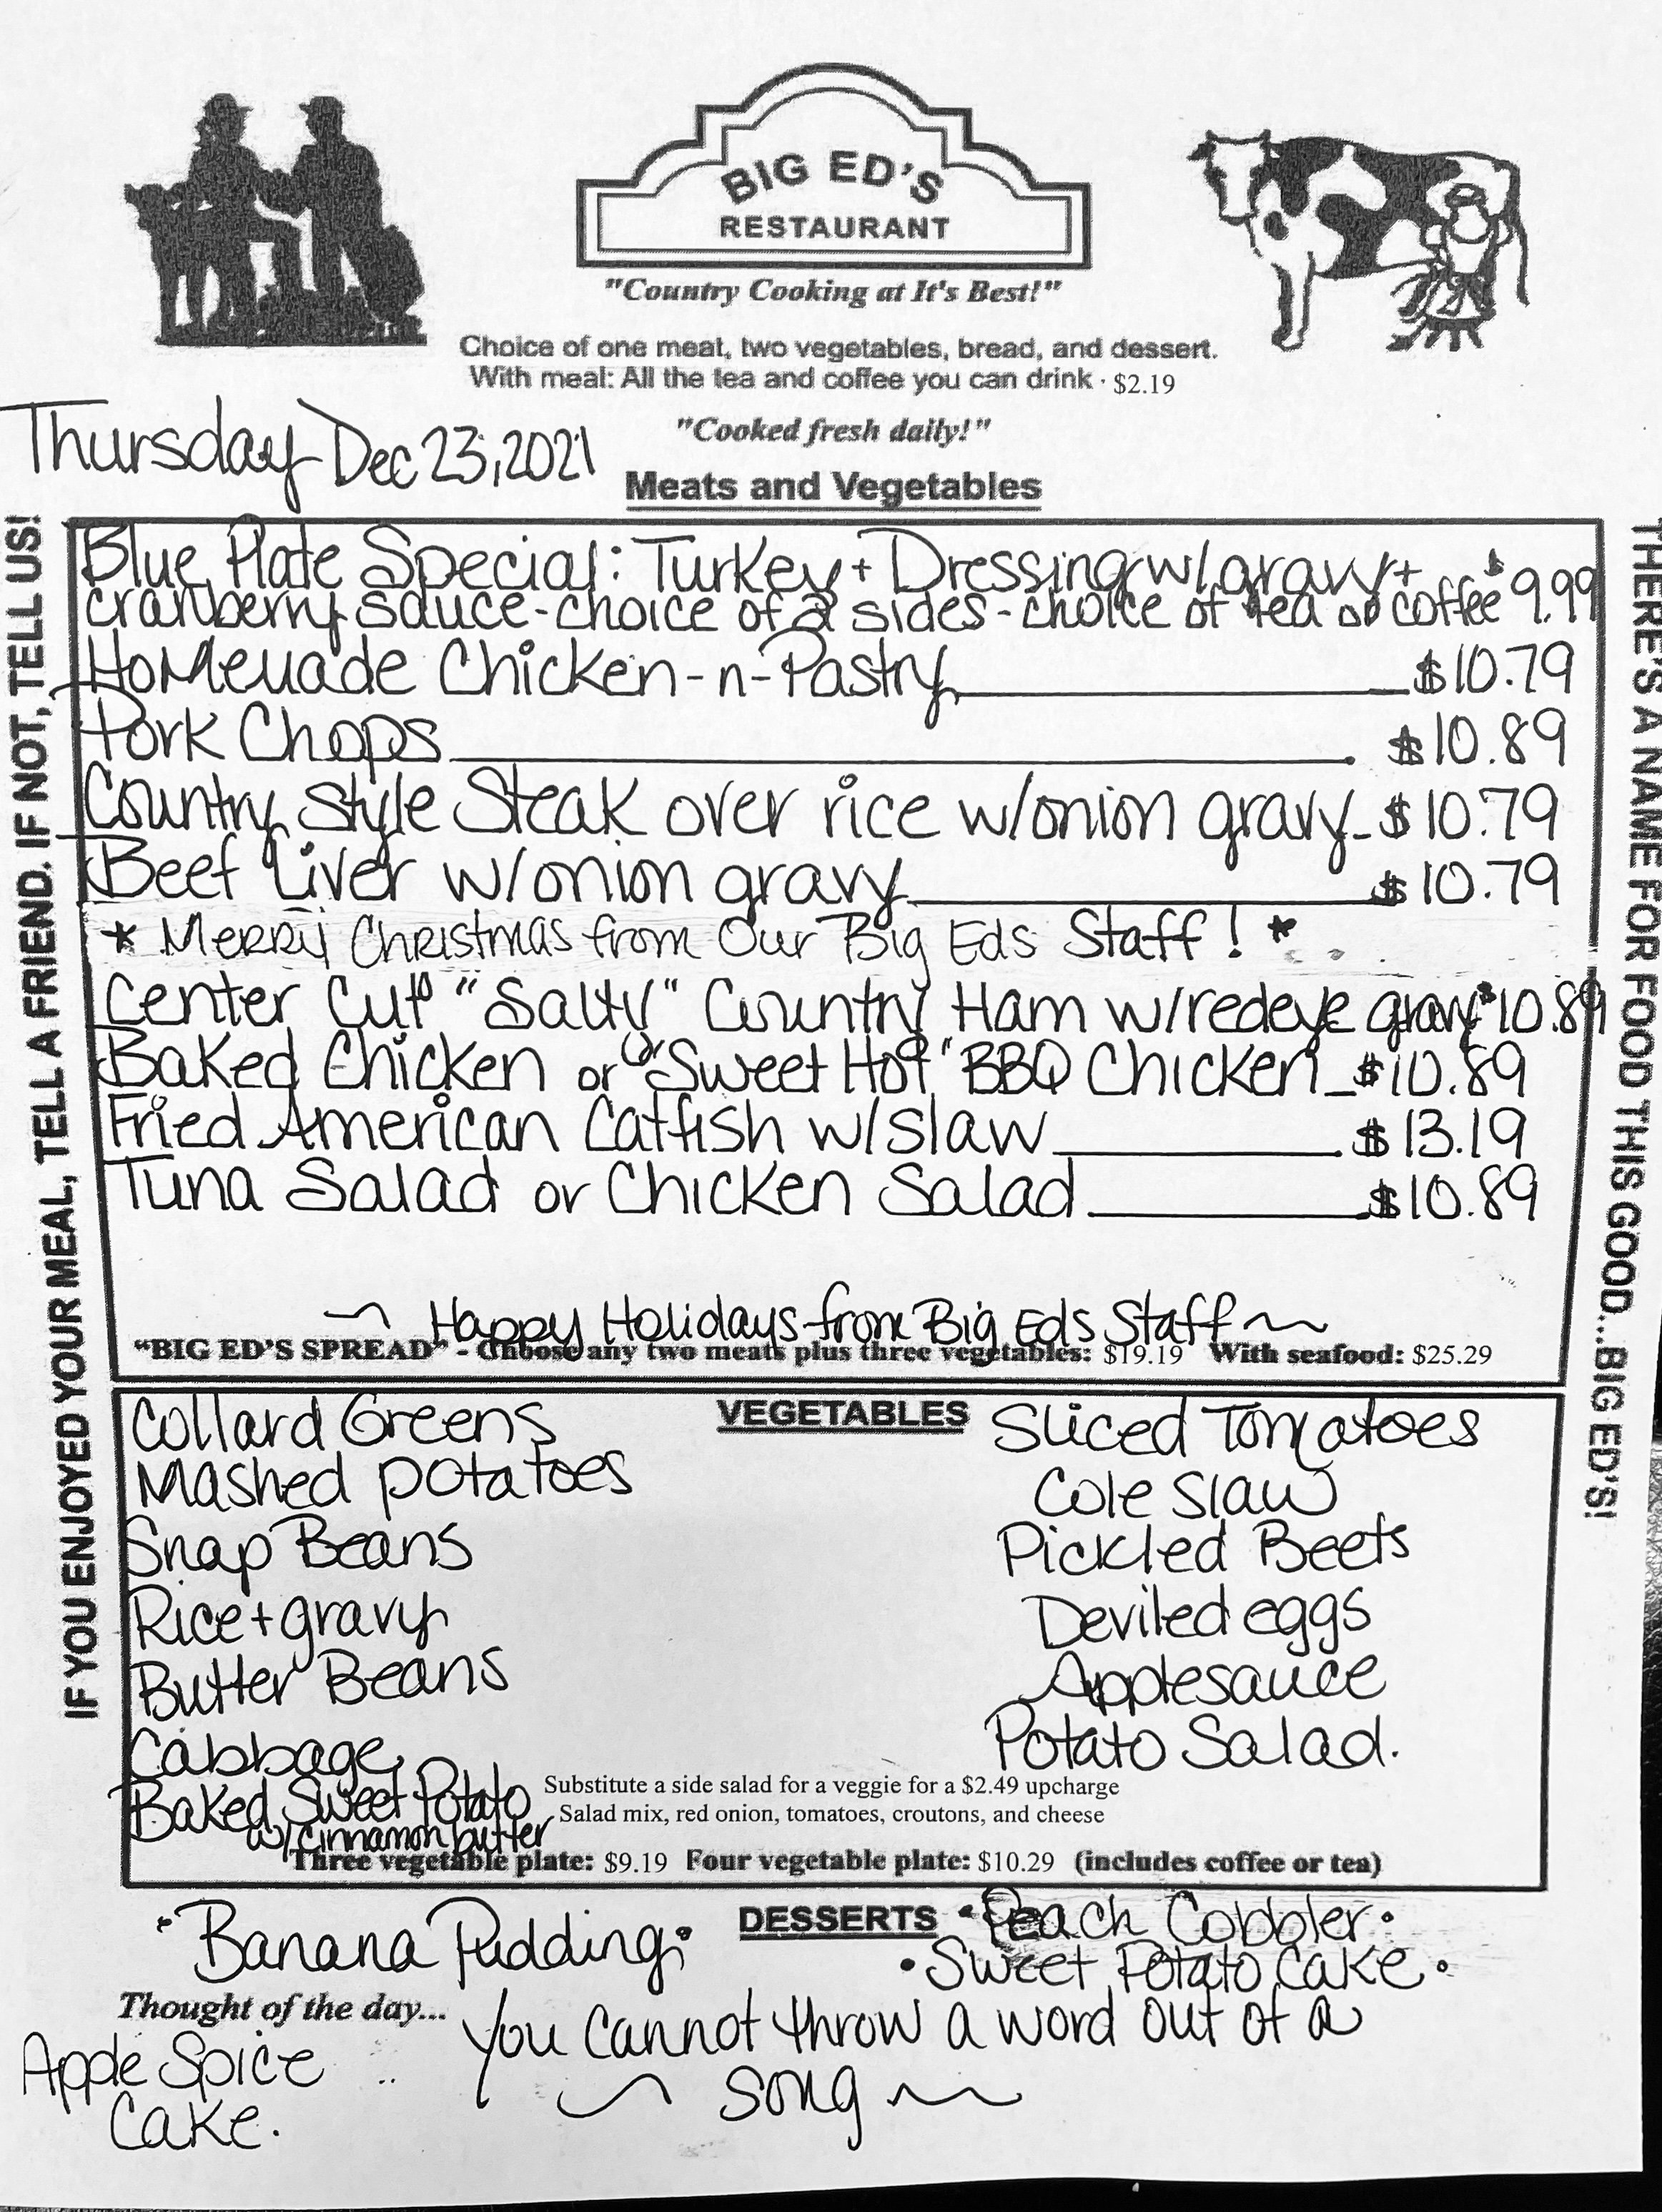 BIG ED'S
RESTAURANT
"Country Cooking at It's Best!"
Choice of one meat, two vegetables, bread, and dessert.
With meal: All the tea and coffee you can drink · $2.19
"Cooked fresh daily!"
Thursday Dec 23, 2021
Meats and Vegetables
IF YOU ENJOYED YOUR MEAL, TELL A FRIEND. IF NOT, TELL US!
THERE'S A NAME FOR FOOD THIS GOOD...BIG ED'S!
Blue Plate Special: Turkey + Dressing w/gravy +
cranberry sauce - choice of 2 sides - choice of tea or coffee $9.99
Homemade Chicken-n-Pastry $10.79
Pork Chops $10.89
Country Style Steak over rice w/onion gravy - $10.79
Beef Liver w/onion gravy $10.79
* Merry Christmas from Our Big Eds Staff! *
Center Cut "Salty" Country Ham w/redeye gravy $10.89
Baked Chicken or "Sweet Hot" BBQ Chicken $10.89
Fried American Catfish w/slaw $13.19
Tuna Salad or Chicken Salad $10.89
~ Happy Holidays from Big Eds Staff ~
"BIG ED'S SPREAD" - Choose any two meats plus three vegetables: $19.19 With seafood: $25.29
VEGETABLES
Collard Greens
Mashed potatoes
Snap Beans
Rice + gravy
Butter Beans
Cabbage
Baked Sweet Potato
w/cinnamon butter
Sliced Tomatoes
Cole Slaw
Pickled Beets
Deviled eggs
Applesauce
Potato Salad.
Substitute a side salad for a veggie for a $2.49 upcharge
Salad mix, red onion, tomatoes, croutons, and cheese
Three vegetable plate: $9.19 Four vegetable plate: $10.29 (includes coffee or tea)
DESSERTS
· Banana Pudding ·
· Peach Cobbler ·
· Sweet Potato Cake ·
Apple Spice
Cake.
Thought of the day...
You cannot throw a word out of a
~ song ~